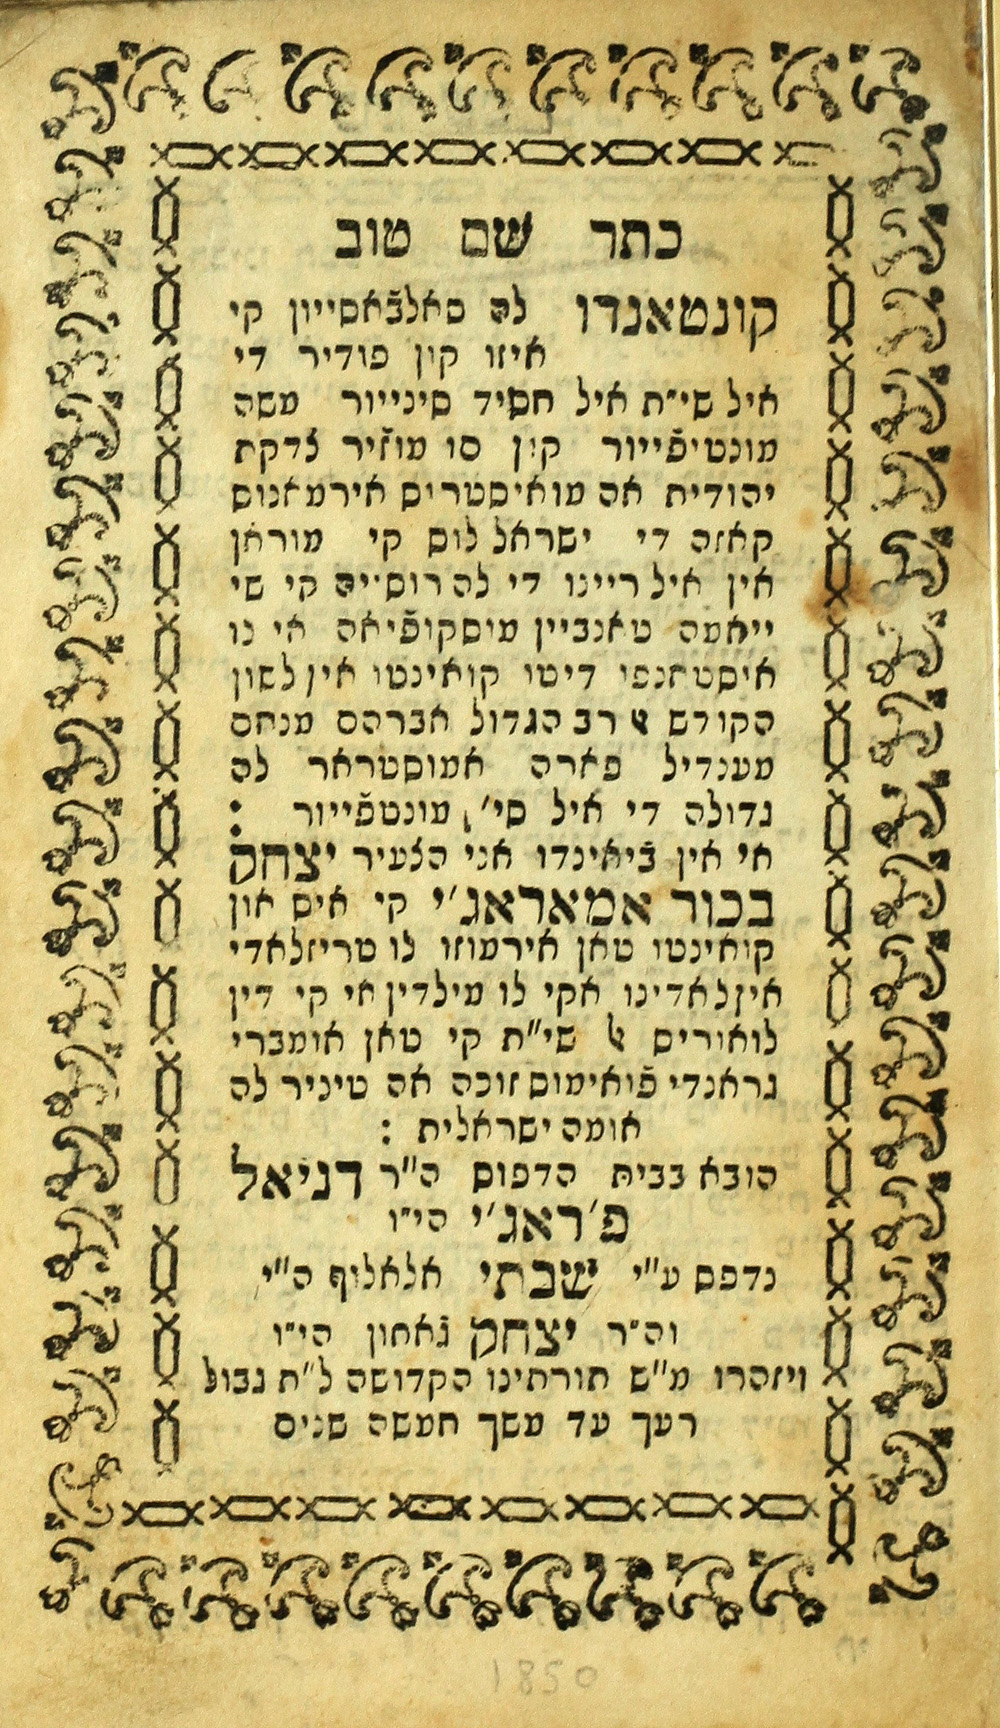 כתר שם טוב
קונטאנדו לה סאלבֿאסייון קי
איזו קון פודיר די
איל שי״ת איל חסיד סינייור משה
מונטיפֿייור קון סו מוז׳יר צדקת
יהודית אה מואיסטריס אירמאנוס
קאזה די ישראל לוס קי מוראן
אין איל ריינו די לה רוסייה קי שי
ייאמה טאנביין מוסקופֿיאה אי נו
דיטו קואינטו אין לשון
הקודש רב הגדול אברהם מנחם
מענדיל פארה אמוסטראר לה
גדולה די איל סי׳ מונטפֿייור :
אי אין בֿיאינדו אני הצעיר יצחק
בכור אמאראג׳י קי איס און
קואינטו טאן אירמוזו לו טריזלאדי
אינלאדינו אקי לו מילדין אי קי דין
לואוריס שי״ת קי טאן אומברי
גראנדי פֿואימוס זוכה אה טיניר לה
אומה ישראלית :
הובא בבית הדפוס ה״ר דניאל
פ׳ראג׳י הי״ו
נדפס ע״י שבתי אלאלוף ה״י
וה״ר יצחק ג׳אחון הי״ו
ויזהרו מ״ש תורתינו הקדושה ל״ת גבול
רעך עד משך חמשה שנים
1850